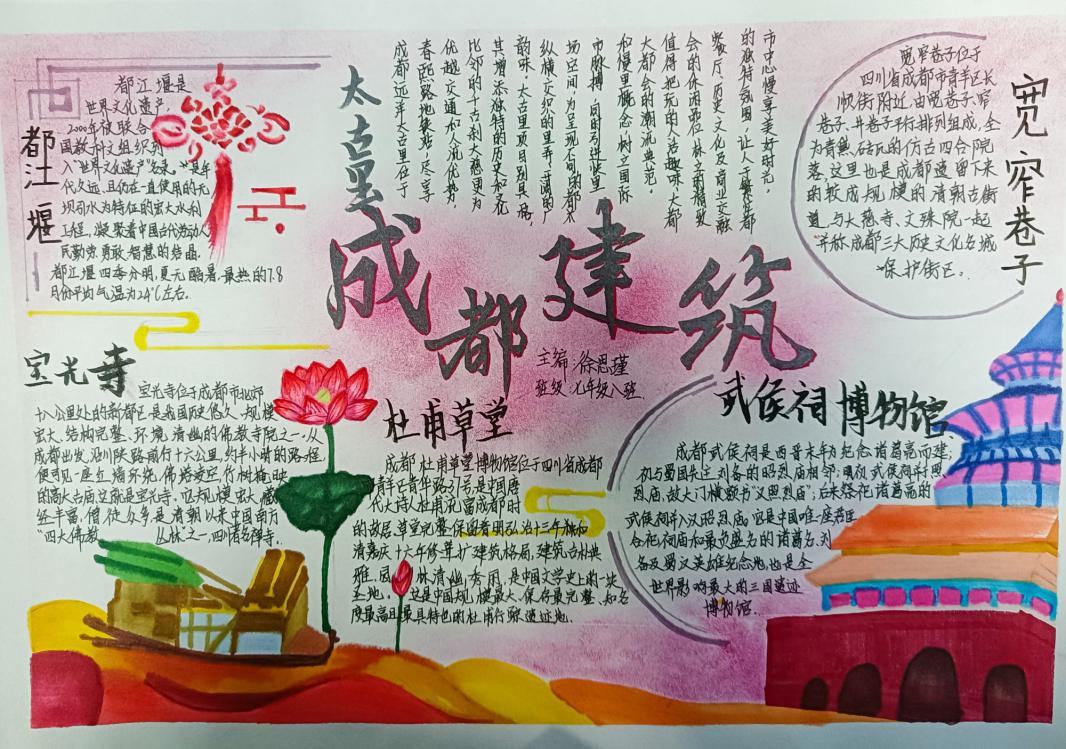 成都建筑
主编:徐思瑾
班级:七年级八班
都江堰
都江堰是
世界文化遗产,
2000年被联合
国教科文组织列
入“世界文化遗产”名录。是年
代久远,且仍在一直使用的无
坝引水为特征的宏大水利
工程,凝聚着中国古代劳动人
民勤劳、勇敢、智慧的结晶。
都江堰四季分明,夏无酷暑,最热的7.8
月份平均气温为24℃左右。
太古里
成都远洋太古里位于
春熙路地接壤,尽享
优越交通和人流优势。
比邻的千古刹大慈更为
其增添独特的历史和文化
韵味。太古里项目别具一格,
纵横交织的里弄、开阔的广
场空间,为呈现不同的都市
脉搏,同时引进快里
和慢里概念,树立国际
大都会的潮流典范。
值得把玩的人活趣味、大都
会的休闲品位、林立的精致
餐厅、历史文化及商业交融
的独特氛围,让人于繁华都
市中心慢享美好时光。
宽窄巷子
宽窄巷子位于
四川省成都市青羊区长
顺街附近,由宽巷子、窄
巷子、井巷子平行排列组成,全
为青黛砖瓦的仿古四合院
落,这里也是成都遗留下来
的较成规模的清朝古街
道,与大慈寺、文殊院一起
并称成都三大历史文化名城
保护街区。
宝光寺
宝光寺位于成都市北郊
十八公里处的新都区,是我国历史悠久、规模
宏大、结构完整、环境清幽的佛教寺院之一。从
成都出发,沿川陕路北行十六公里,约半小时的路程,
便可见一座红墙环绕,佛塔凌空,竹树掩映
的高大古庙,这就是宝光寺。它规模宏大,藏
经丰富,僧徒众多,是清朝以来中国南方
“四大佛教丛林”之一,四川著名禅寺。
杜甫草堂
成都杜甫草堂博物馆位于四川省成都
市青羊区青华路37号,是中国唐
代大诗人杜甫流寓成都时
的故居。草堂完整保留着明弘治十三年和
清嘉庆十六年修葺扩建筑格局,建筑古朴典
雅、园林清幽秀丽,是中国文学史上的一块
圣地。这是中国规模最大、保存最完整、知名
度最高且最具特色的杜甫行踪遗迹地。
武侯祠博物馆
成都武侯祠是西晋末年为纪念诸葛亮而建;
初与蜀国先主刘备的昭烈庙相邻,明初武侯祠并昭
烈庙,故大门横额书“汉昭烈庙”;后来祭祀诸葛亮的
武侯祠并入汉昭烈庙。它是中国唯一一座君臣
合祀祠庙和最负盛名的诸葛亮、刘
备及蜀汉英雄纪念地,也是全
世界影响最大的三国遗迹
博物馆。